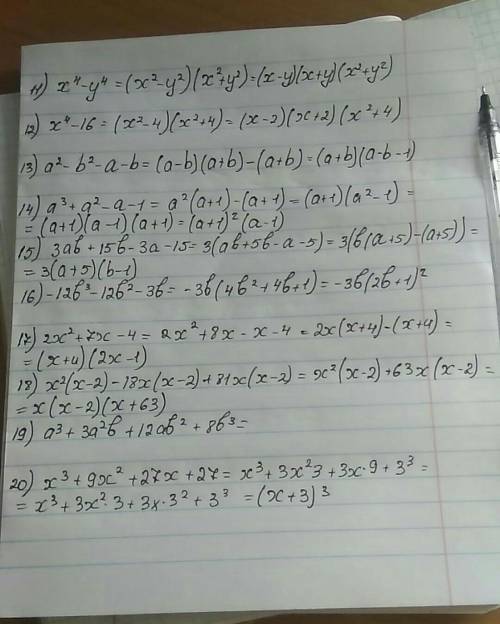 11) x⁴-y⁴=(x²-y²)(x²+y²)=(x-y)(x+y)(x²+y²)
12) x⁴-16=(x²-4)(x²+4)=(x-2)(x+2)(x²+4)
13) a²-b²-a-b=(a-b)(a+b)-(a+b)=(a+b)(a-b-1)
14) a³+a²-a-1=a²(a+1)-(a+1)=(a+1)(a²-1)=
=(a+1)(a-1)(a+1)=(a+1)²(a-1)
15) 3ab+15b-3a-15=3(ab+5b-a-5)=3(b(a+5)-(a+5))=
=3(a+5)(b-1)
16) -12b³-12b²-3b=-3b(4b²+4b+1)=-3b(2b+1)²
17) 2x²+7x-4=2x²+8x-x-4=2x(x+4)-(x+4)=
=(x+4)(2x-1)
18) x²(x-2)-18x(x-2)+81x(x-2)=x²(x-2)+63x(x-2)=
=x(x-2)(x+63)
19) a³+3a²b+12ab²+8b³=
20) x³+9x²+27x+27=x³+3x²3+3x·9+3³=
=x³+3x²·3+3x·3²+3³=(x+3)³